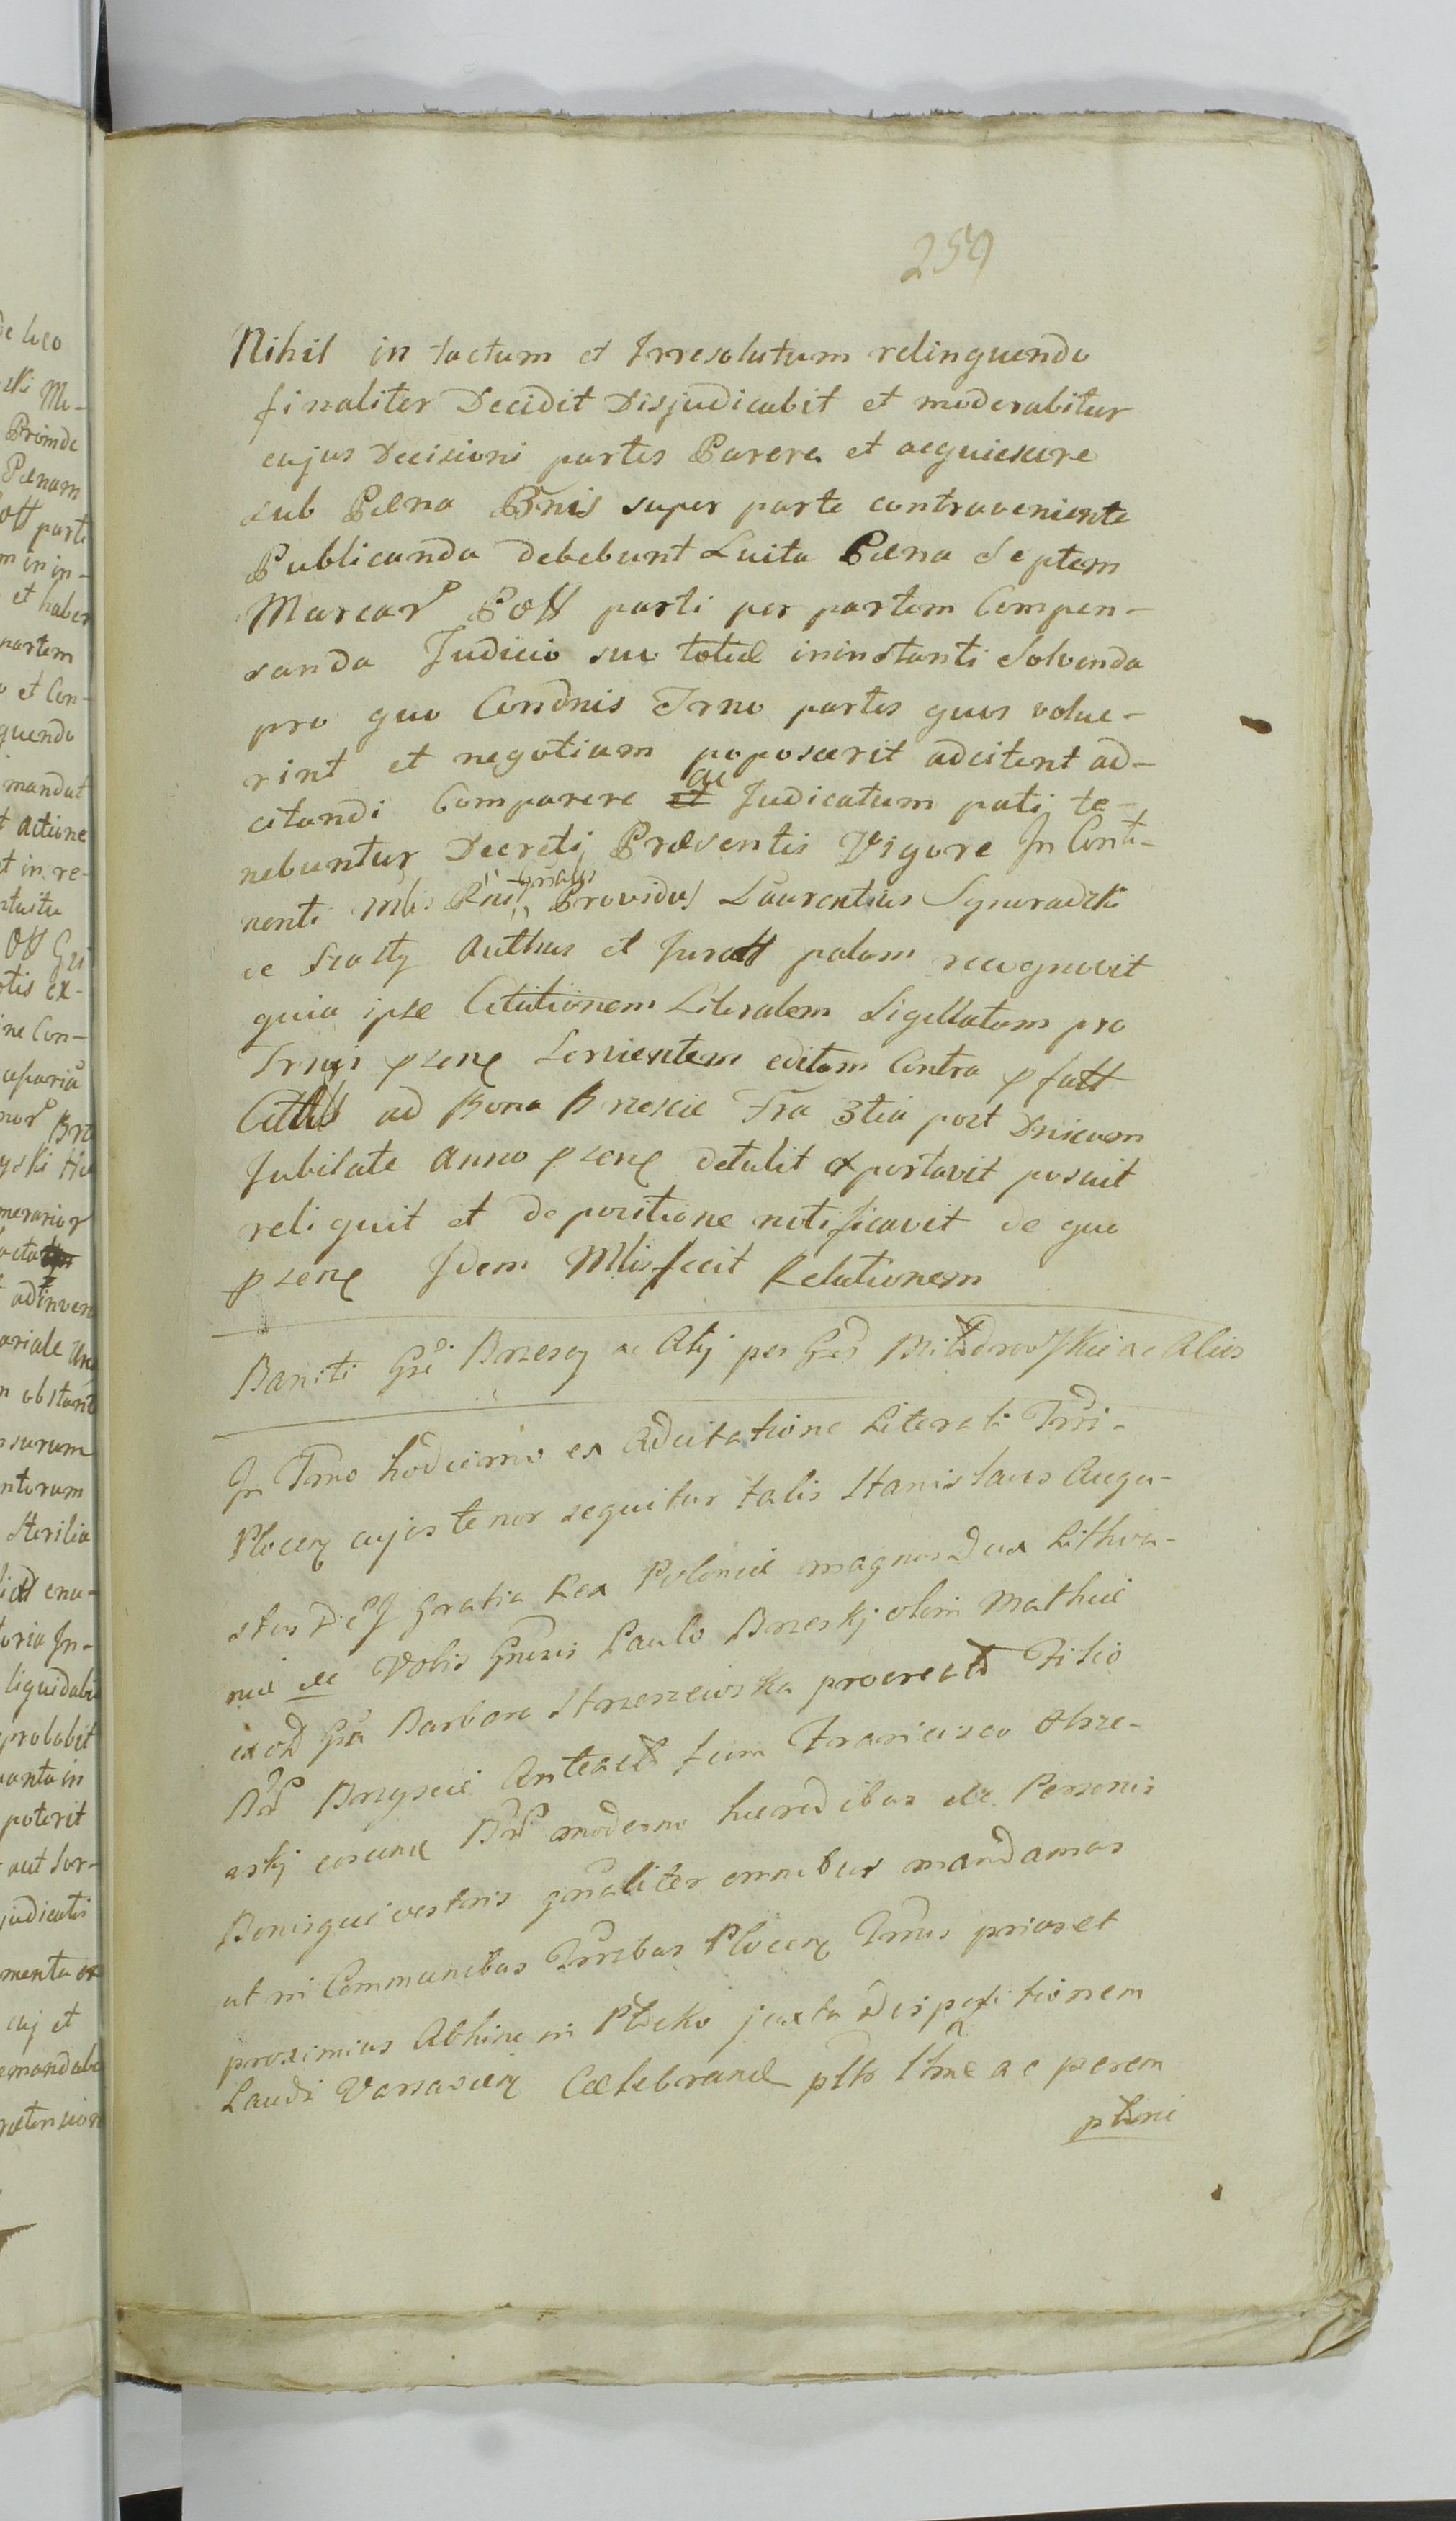 259
Nihil in tactum et Irresolutum relinquendo
finaliter Decidit Disjudicabit et moderabitur
cujus Decisioni partes Parere et acquiescere
sub Pæna Bnis super parte contraveniente
Publicanda debebunt Luita Pæna Septem
Marcar Poll parti per partem Compen-
sanda Judicio suo totæ ininstanti Solvenda
pro quo Condnis Trno partes quos volue-
rint et negotium poposcerit adcitent ad-
citandi Comparere ac Judicatum pati te-
nebuntur Decreti Præsentis Vigore In Conti-
nenti Mlis Providus Laurentius
de Authus et Juratt palam recognovit
quia ipse Citationem Literalem Sigillatam pro
Trnis psenq Servientem editam Contra pfatt
Cittts ad Bona Brzescie Fra 3tia post Dnicam
Jubilate anno psenq detulit exportavit posuit
reliquit et de positione notificavit de quo
psenq Idem Mlis fecit Relationem
Baniti Gsi Brzescy ac Alij per Gsd ac Alios
In Tmo hodierno ex Adcitatione Literali Trri-
Plocen cujus tenor sequitur talis Stanislaus Augu-
stus Dei Gratia Rex Poloniæ magnus Dux Lithva-
niæ &c Vobis Gnesis Paulo Brzeskj olim Mathiæ
ex Gsa Barbara Strzeszewska procreatt Filio
Brzysciæ Anteactt tum Francisco Obrze-
askj eorunq moderno hæredibus de Personis
Bonisque vestris gnaliter omnibus mandamus
ut in Communibus Trribus Plocen Trnis prius et
proximius Abhinc in Plocko juxta dispositionem
Laudi Varsavien Cœlebrand pltr ltme ac perem
ptorie